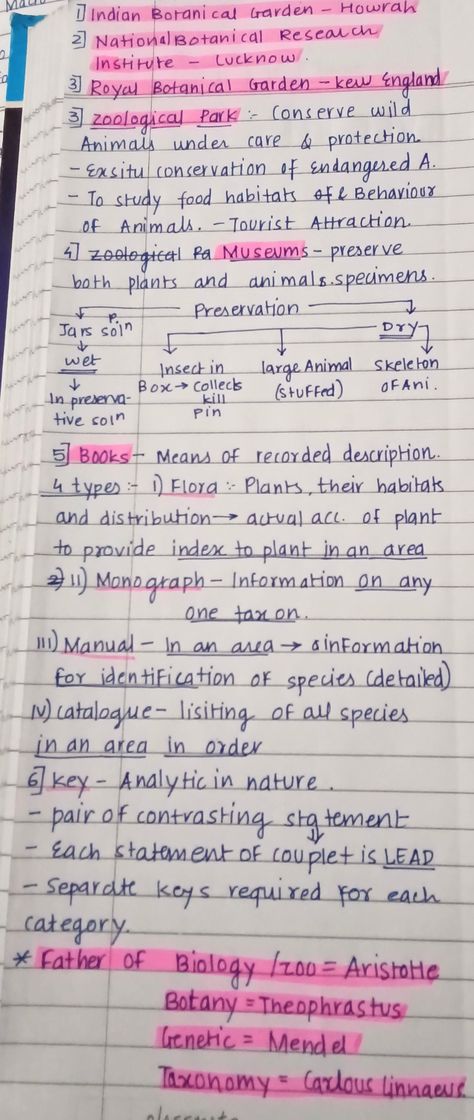 1] Indian Botanical Garden - Howrah
2] National Botanical Research
Institute - Lucknow.
3] Royal Botanical Garden - Kew England
3] Zoological Park :- Conserve wild
Animals under care & protection
- Exsitu conservation of Endangered A.
- To study food habitats of & Behaviour
of Animals. - Tourist Attraction.
4] Zoological Pa Museums - preserve
both plants and animals.specimens.
Preservation
Jars P. soln
Dry
wet
Insect in
large Animal
Skeleton
Box → collects
(stuffed)
of Ani.
kill
Pin
In preserva-
tive soln
5] Books - Means of recorded description.
4 types :- i) Flora :- Plants, their habitats
and distribution → actual acc. of plant
to provide index to plant in an area
2) ii) Monograph - Information on any
one taxon.
iii) Manual - In an area → information
for identification of species (detailed)
iv) Catalogue - lisiting of all species
in an area in order
6] Key - Analytic in nature.
- pair of contrasting statement
- Each statement of couplet is LEAD
- Separate keys required for each
category.
* Father of Biology / zoo = Aristotle
Botany = Theophrastus
Genetic = Mendel
Taxonomy = Carlous Linnaeus